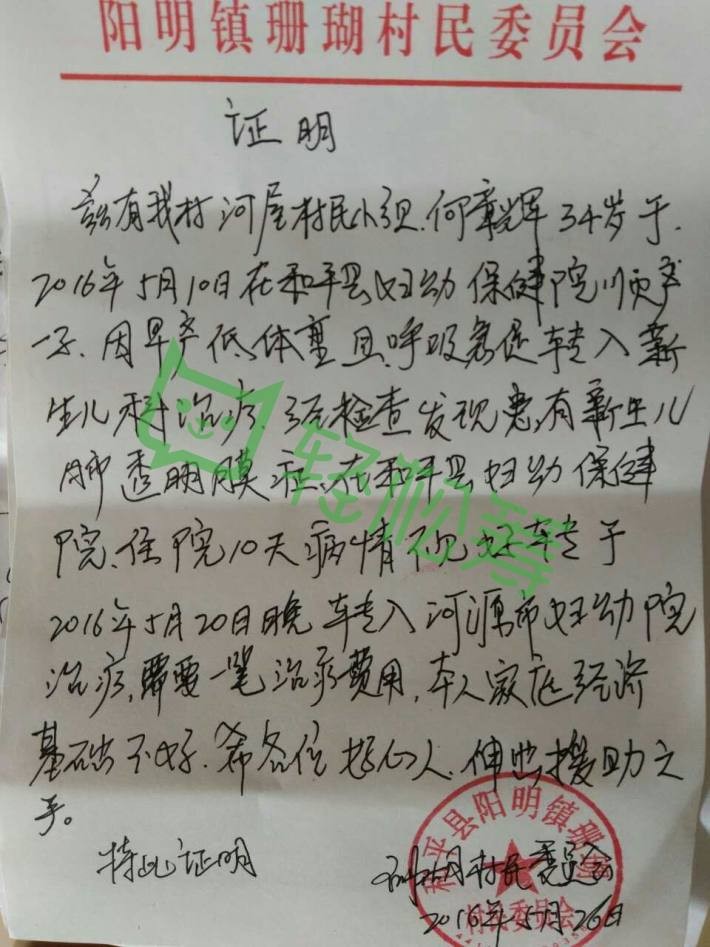 阳明镇珊瑚村民委员会
证明
兹有我村河屋村民小组.何章辉34岁于.
2016年5月10日在和平县妇幼保健院顺产
一子.因早产低体重且呼吸急促转入新
生儿科治疗.经检查发现患有新生儿
肺透明膜症.在和平县妇幼保健
院.住院10天病情不见好转于
2016年5月20日晚转入河源市妇幼院
治疗,需要一笔治疗费用,本人家庭经济
基础不好.希各位好心人.伸出援助之
手。
特此证明
珊瑚村民委员会
2016年5月26日
和平县阳明镇珊瑚
村民委员会
轻松筹